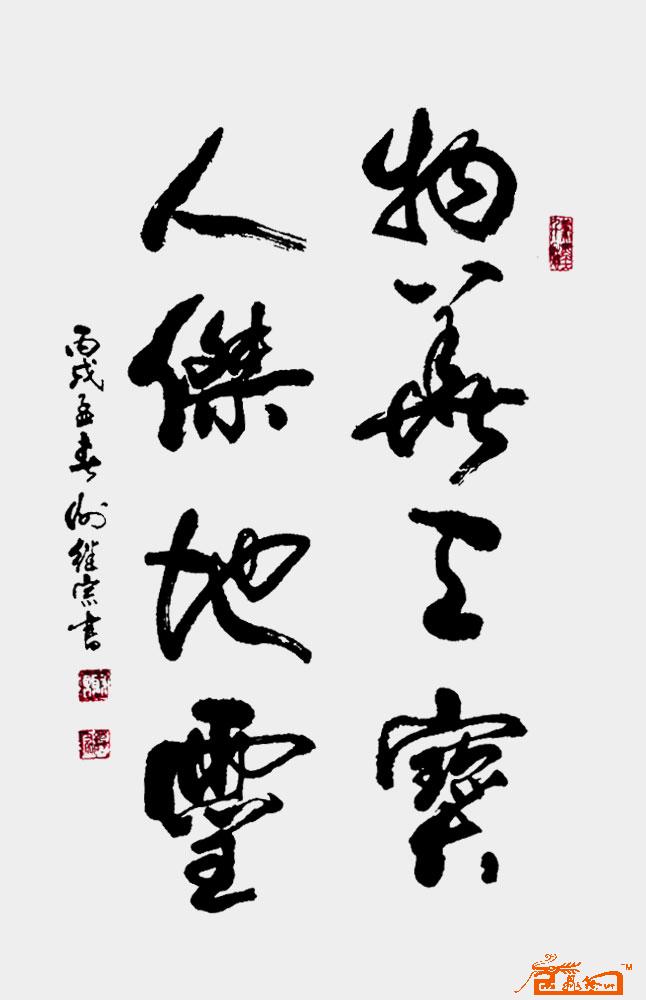 物華天寶
人傑地靈
丙戌孟春 謝維宗書